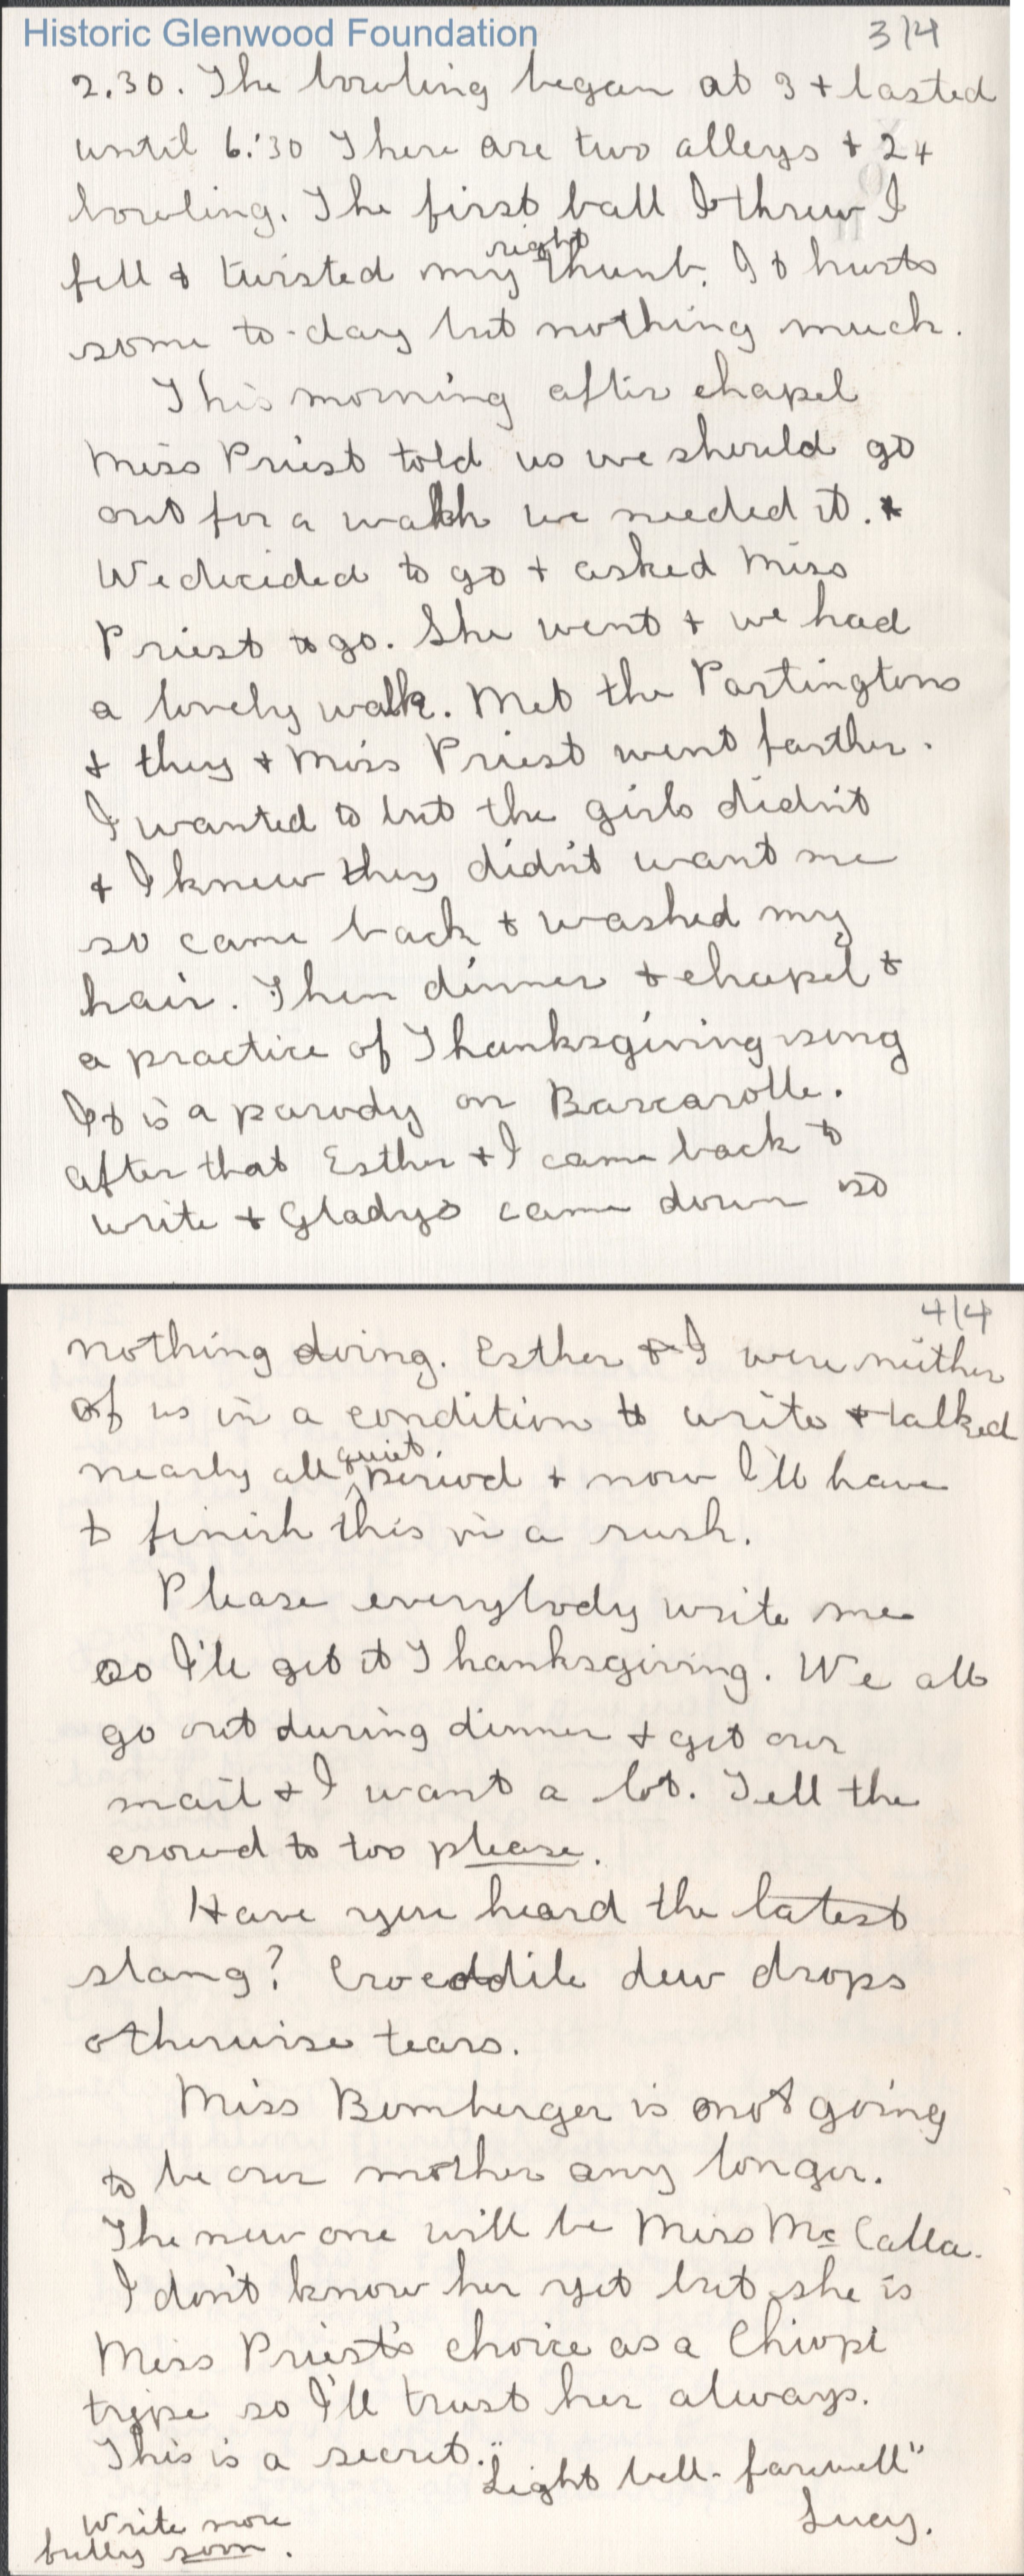 Historic Glenwood Foundation
3/4
2.30. The bowling began at 3 + lasted
until 6:30 There are two alleys + 24
bowling. The first ball I threw I
fell + twisted my right thumb. It hurts
some to-day but nothing much.
This morning after chapel
Miss Priest told us we should go
out for a walk we needed it.
We decided to go + asked Miss
Priest to go. She went + we had
a lovely walk. Met the Partingtons
+ they + Miss Priest went farther.
I wanted to but the girls didn't
+ I knew they didn't want me
so came back + washed my
hair. Then dinner + chapel +
a practice of Thanksgiving song
It is a parody on Barcarolle.
After that Esther + I came back to
write + Gladys came down so
4/4
nothing doing. Esther + I were neither
of us in a condition to write + talked
nearly all quiet period + now I'll have
to finish this in a rush.
Please everybody write me
so I'll get it Thanksgiving. We all
go out during dinner + get our
mail + I want a lot. Tell the
crowd to too please.
Have you heard the latest
slang? Crocodile dew drops
otherwise tears.
Miss Bomberger is not going
to be our mother any longer.
The new one will be Miss McCalla.
I don't know her yet but she is
Miss Priest's choice as a
type so I'll trust her always.
This is a secret.
"Light bell - farewell"
Lucy.
Write more
bully soon.